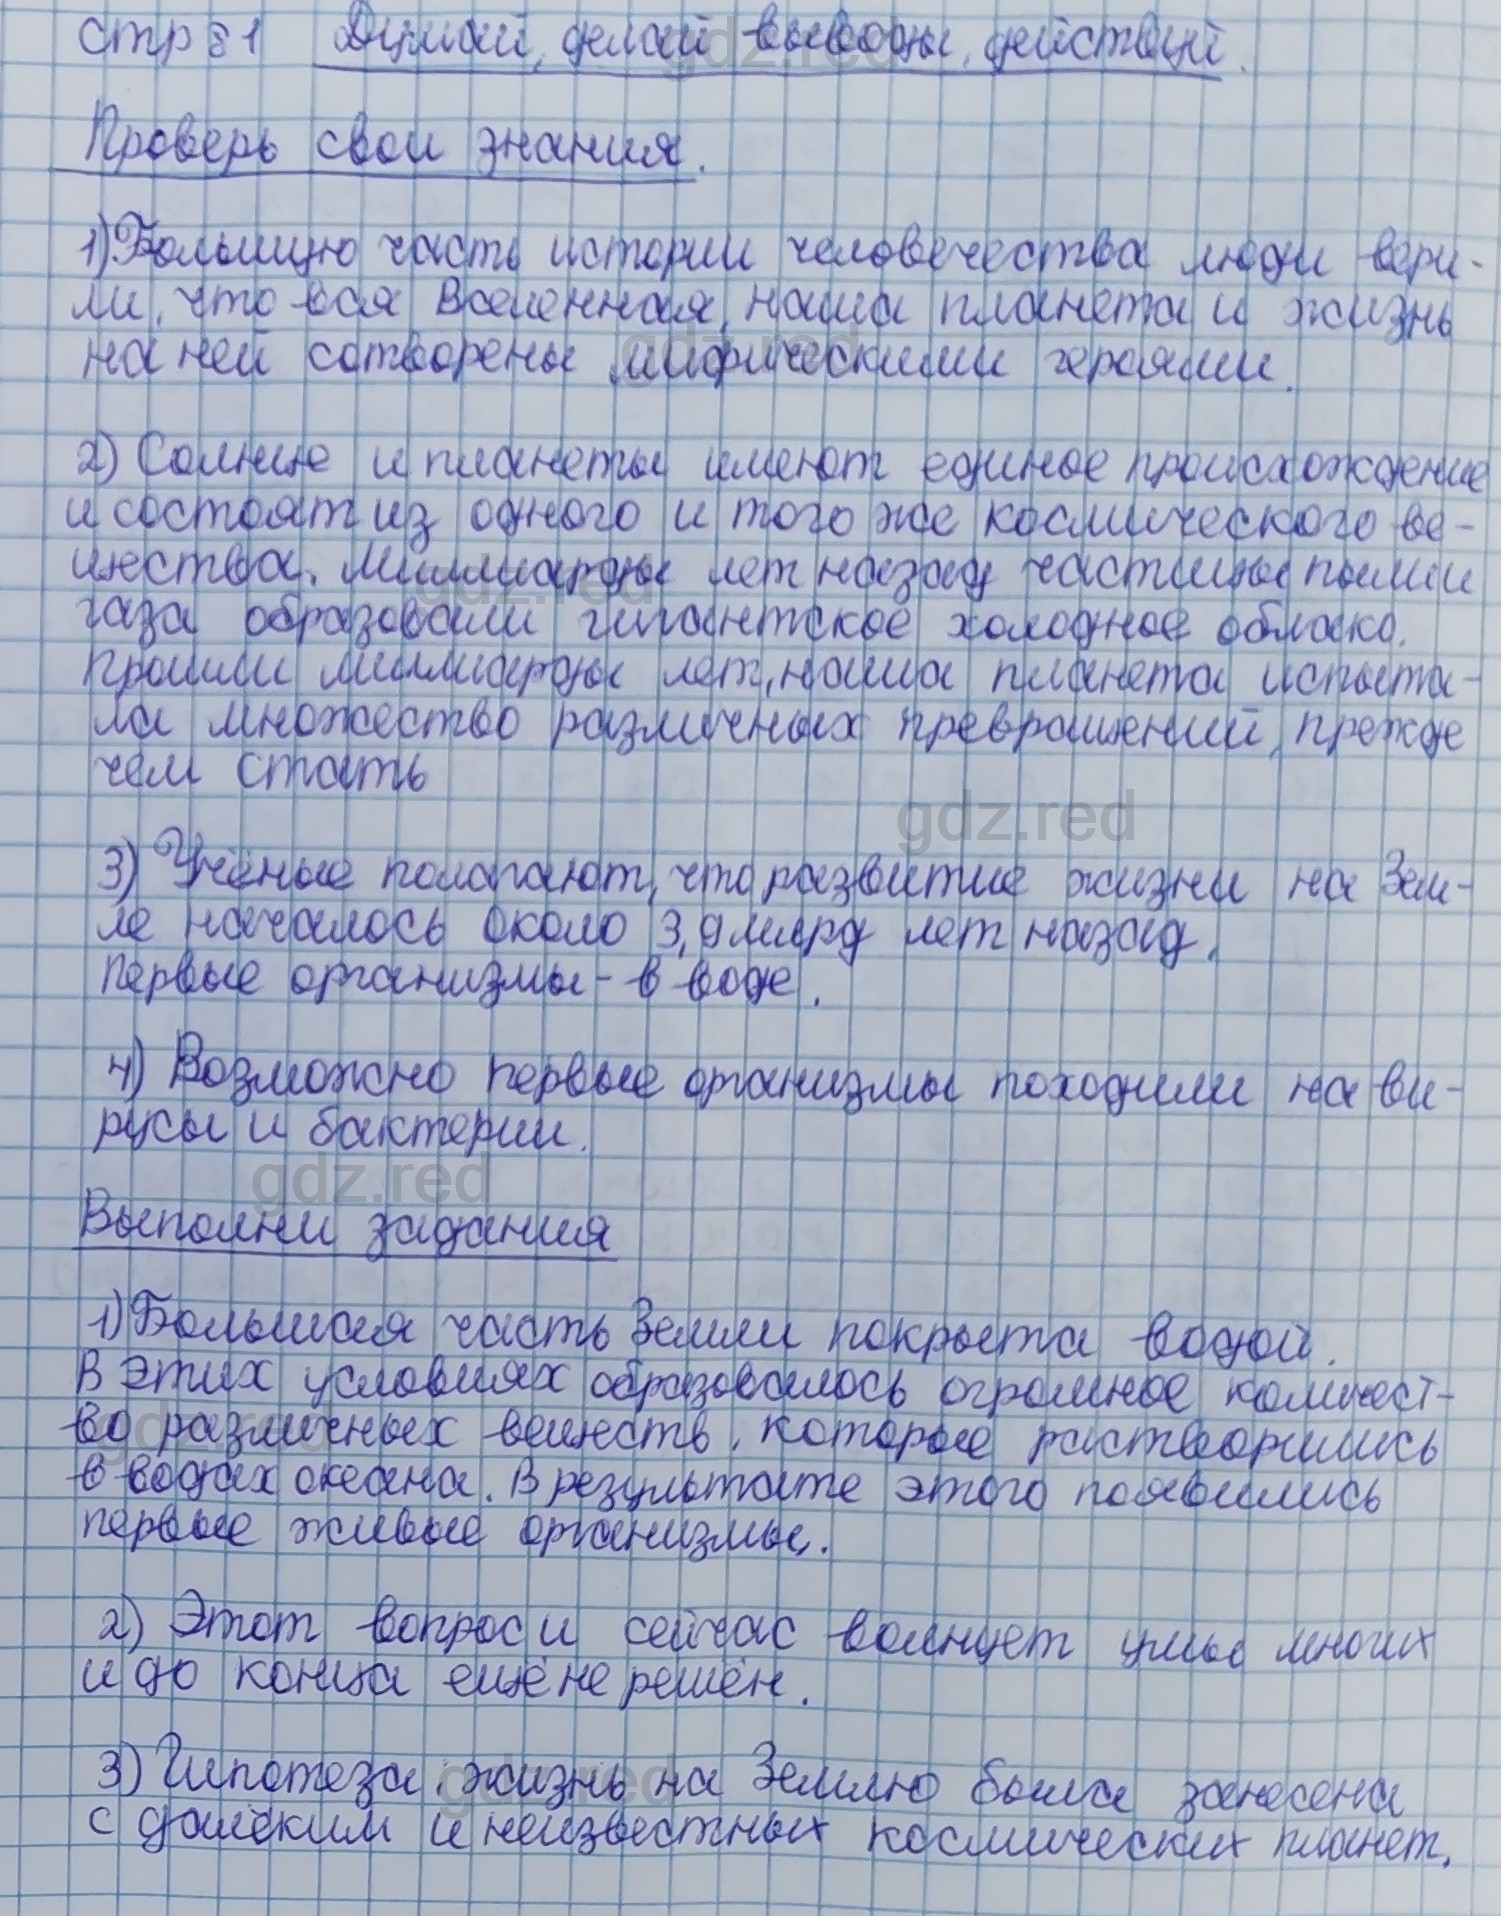 стр 81 Думай, делай выводы, действуй.
Проверь свои знания.
1) Большую часть истории человечества люди вери-
ли, что вся Вселенная, наша планета и жизнь
на ней сотворены мифическими героями.
2) Солнце и планеты имеют единое происхождение
и состоят из одного и того же космического ве-
щества. Миллиарды лет назад частицы пыли и
газа образовали гигантское холодное облако.
Прошли миллиарды лет, наша планета испыта-
ла множество различных превращений, прежде
чем стать
3) Учёные полагают, что развитие жизни на Зем-
ле началось около 3,9 млрд лет назад.
Первые организмы - в воде.
4) Возможно первые организмы походили на ви-
русы и бактерии.
Выполни задания
1) Большая часть Земли покрыта водой.
В этих условиях образовалось огромное количест-
во различных веществ, которые растворились
в водах океана. В результате этого появились
первые живые организмы.
2) Этот вопрос и сейчас волнует умы многих
и до конца ещё не решён.
3) Гипотеза, жизнь на Землю была занесена
с далёким и неизвестных космических планет.
gdz.red
gdz.red
gdz.red
gdz.red
gdz.red
gdz.red
gdz.red